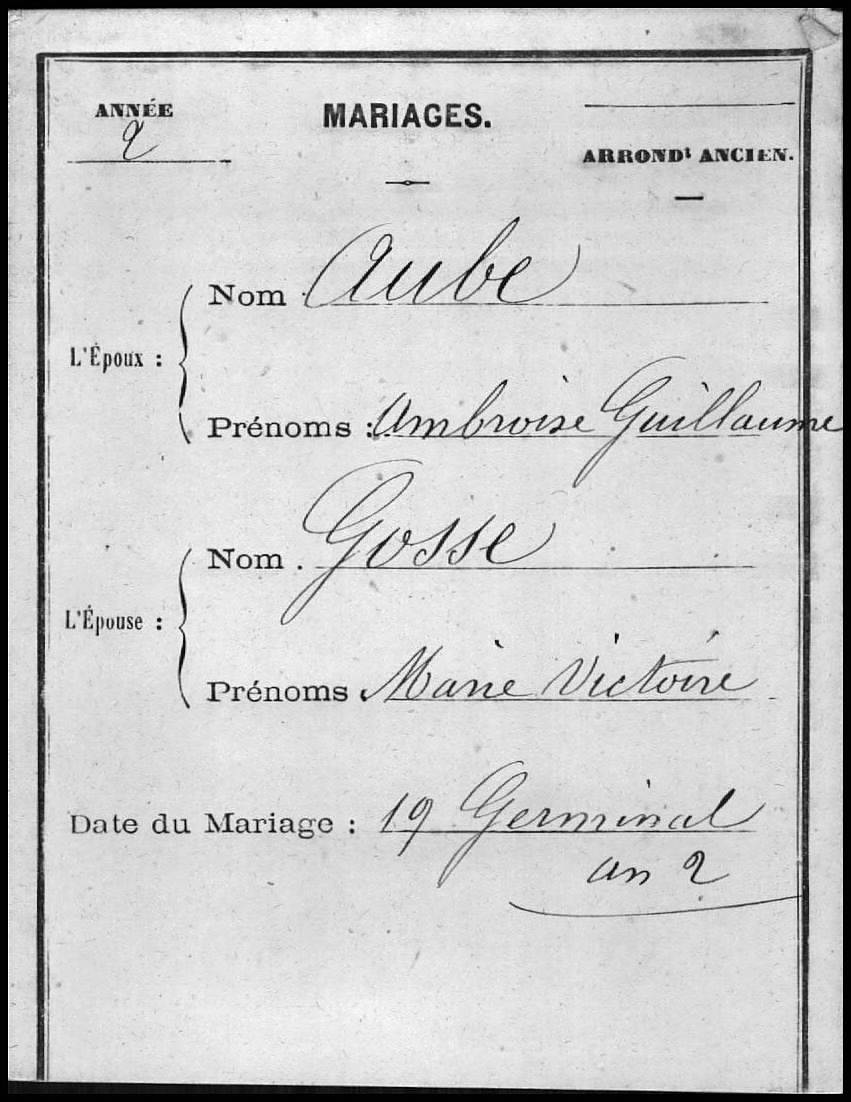 ANNÉE
2
MARIAGES.
ARROND^t ANCIEN.
Nom Aube
L'Époux :
Prénoms : Ambroise Guillaume
Nom . Gosse
L'Épouse :
Prénoms Marie Victoire
Date du Mariage : 19 Germinal
an 2